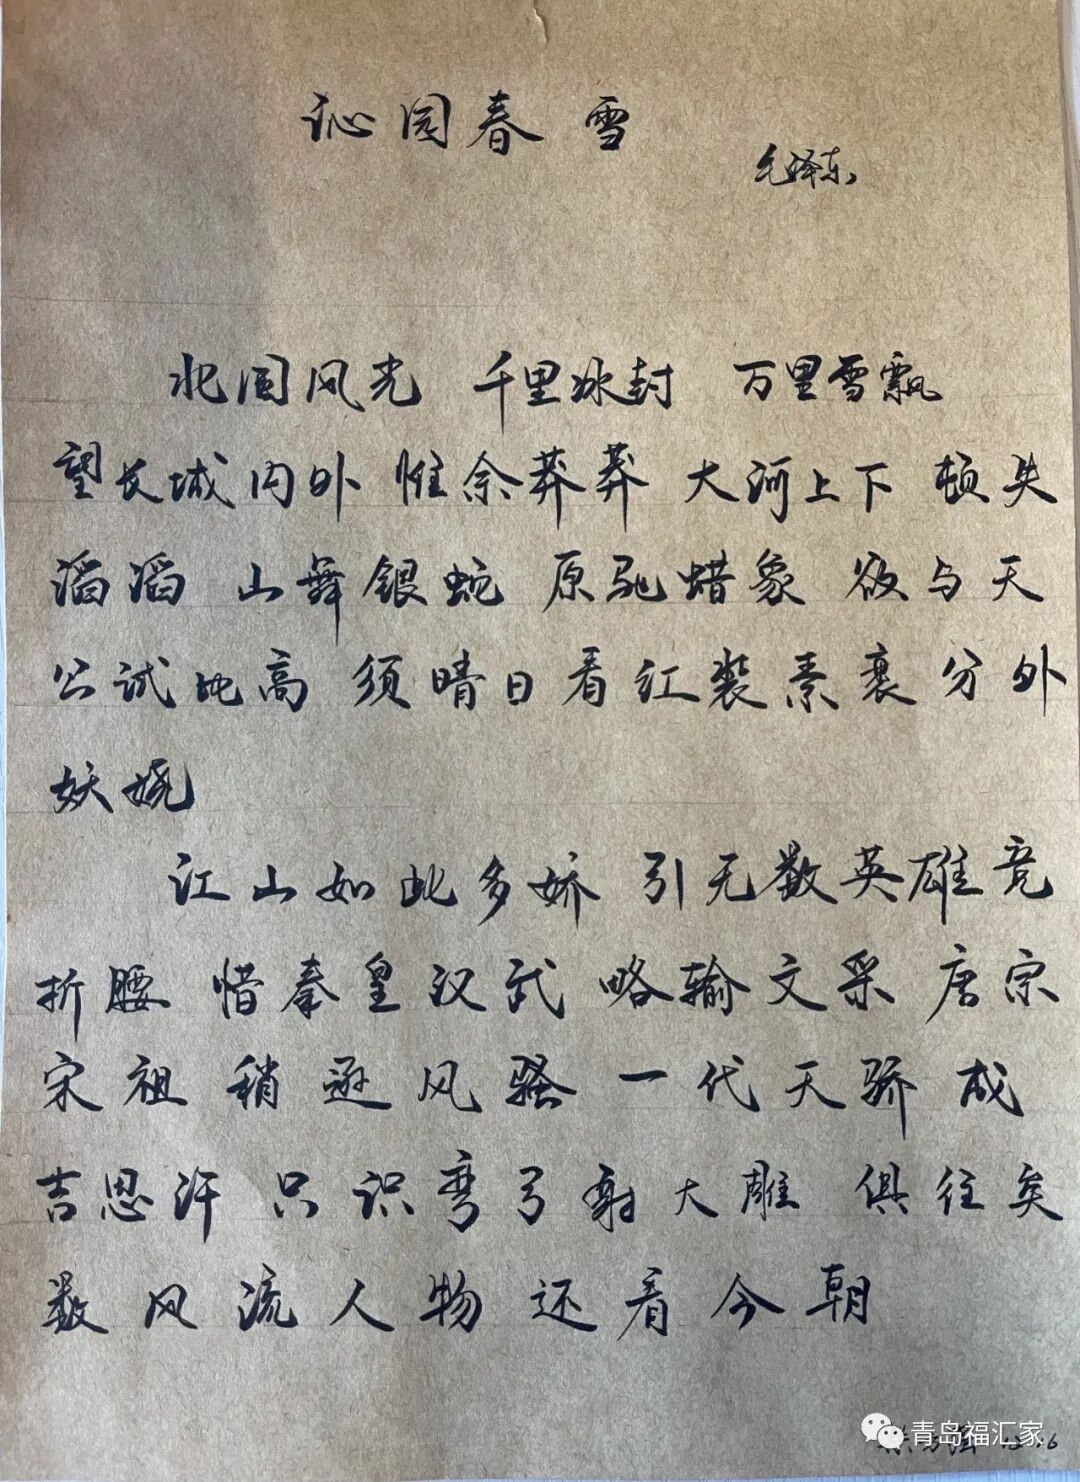 沁园春 雪
毛泽东
北国风光 千里冰封 万里雪飘
望长城内外 惟余莽莽 大河上下 顿失
滔滔 山舞银蛇 原驰蜡象 欲与天
公试比高 须晴日看红装素裹分外
妖娆
江山如此多娇 引无数英雄竞
折腰 惜秦皇汉武 略输文采 唐宗
宋祖 稍逊风骚 一代天骄 成
吉思汗 只识弯弓射大雕 俱往矣
数风流人物 还看今朝
青岛福汇家